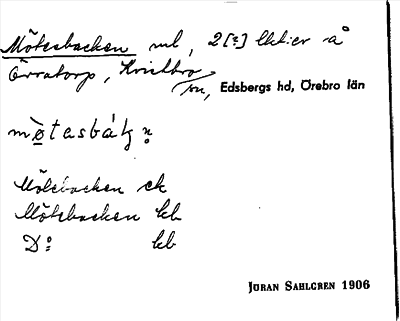 Mötesbacken ml, 2[?] lht:er å
Örratorp, Kvistbro
sn, Edsbergs hd, Örebro län
mø̀tasbák̨ņ
Mötesbacken ek
Mötsbacken kb
D:o kb
Jöran Sahlgren 1906